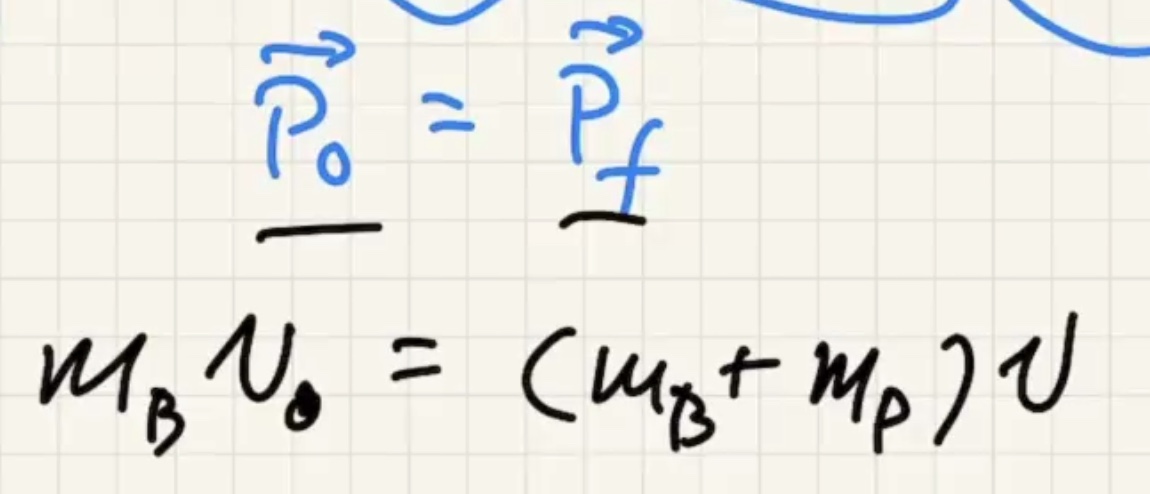 P⃗₀ = P⃗_f
m_B v₀ = (m_B + m_P) v